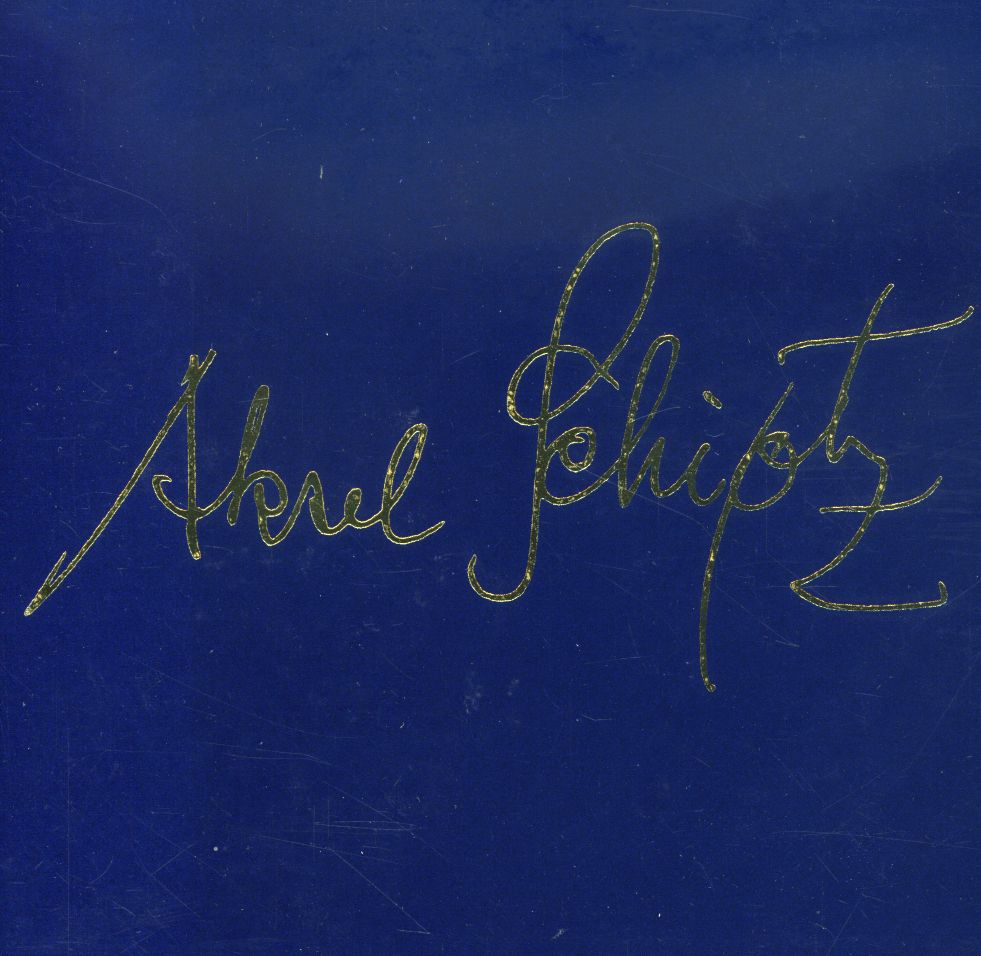 Aksel Schiøtz